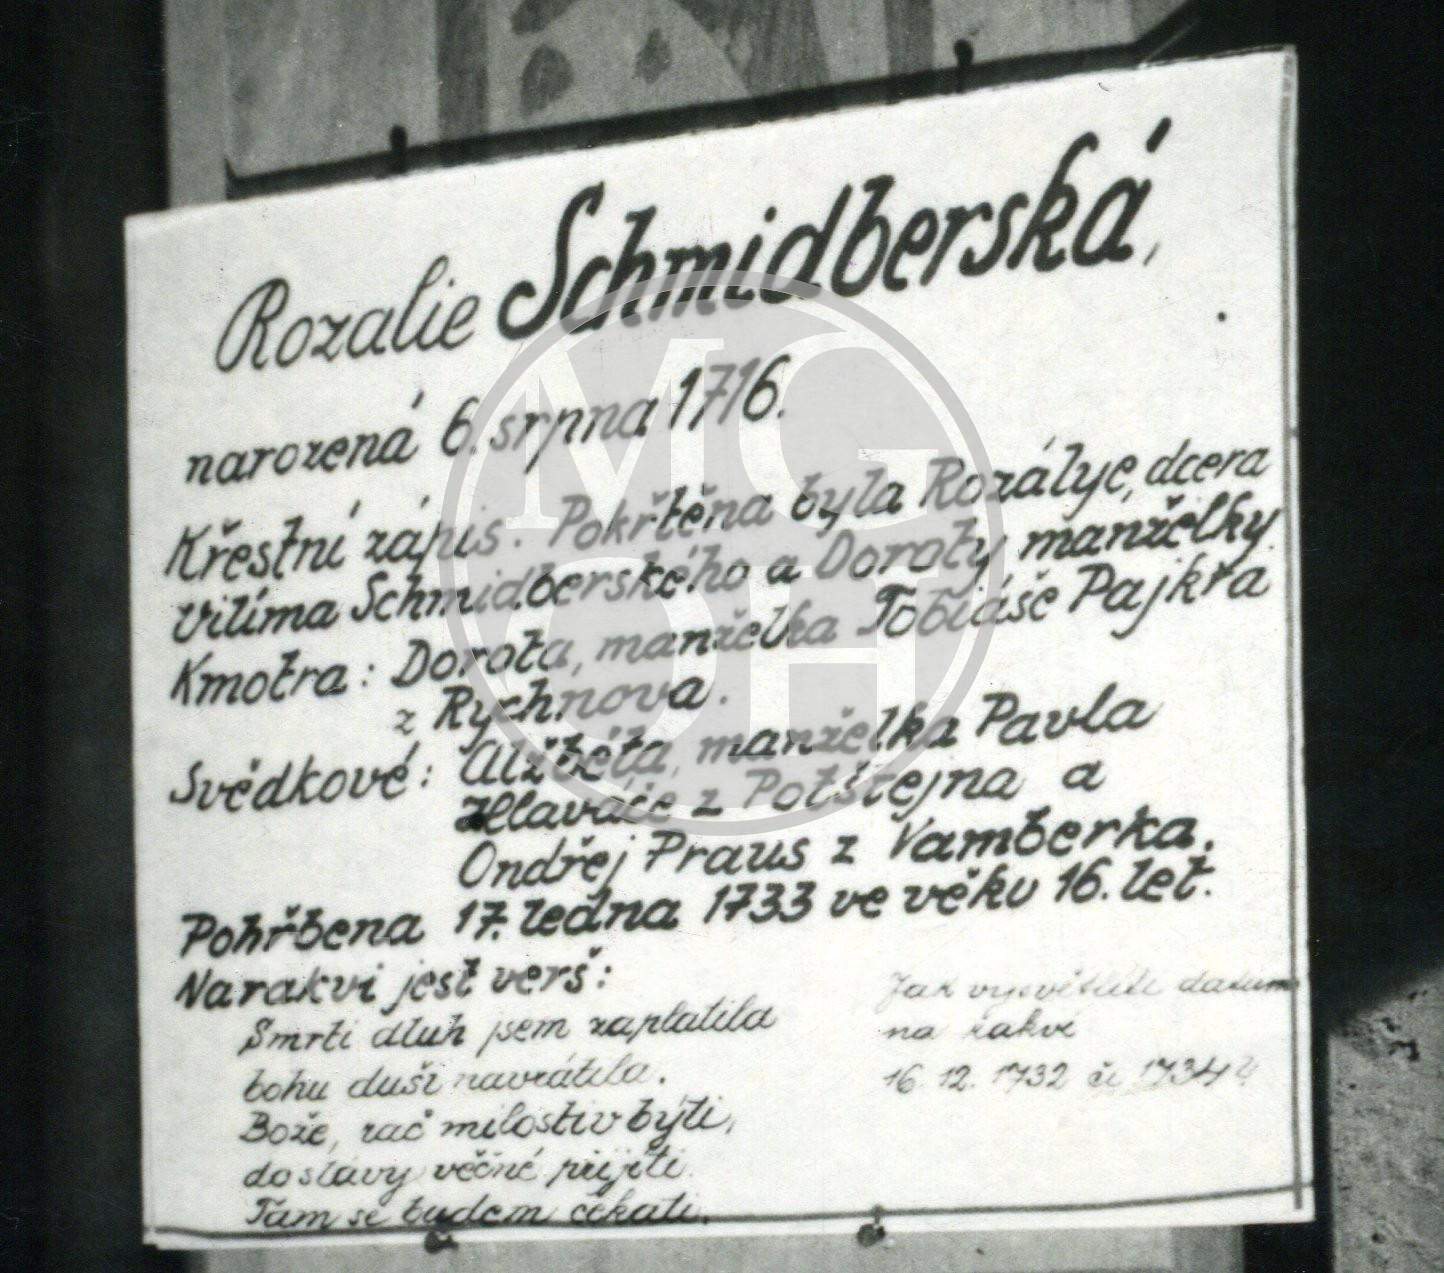 Rozalie Schmidberská,
narozená 6. srpna 1716.
Křestní zápis: Pokřtěna byla Rozálye, dcera
Vilíma Schmidberského a Doroty manželky.
Kmotra: Dorota, manželka Tobiáše Pajkřa
z Rychnova.
Svědkové: Alžběta, manželka Pavla
Hlaváče z Potštejna a
Ondřej Praus z Vamberka.
Pohřbena 17. ledna 1733 ve věku 16. let.
Na rakvi jest verš:
Smrti dluh jsem zaplatila
bohu duši navrátila.
Bože, rač milostiv býti,
do slávy věčné přijíti.
Tam se budem čekati.
Jak vysvětliti datum
na rakvi
16. 12. 1732 či 1734?
MG
OH